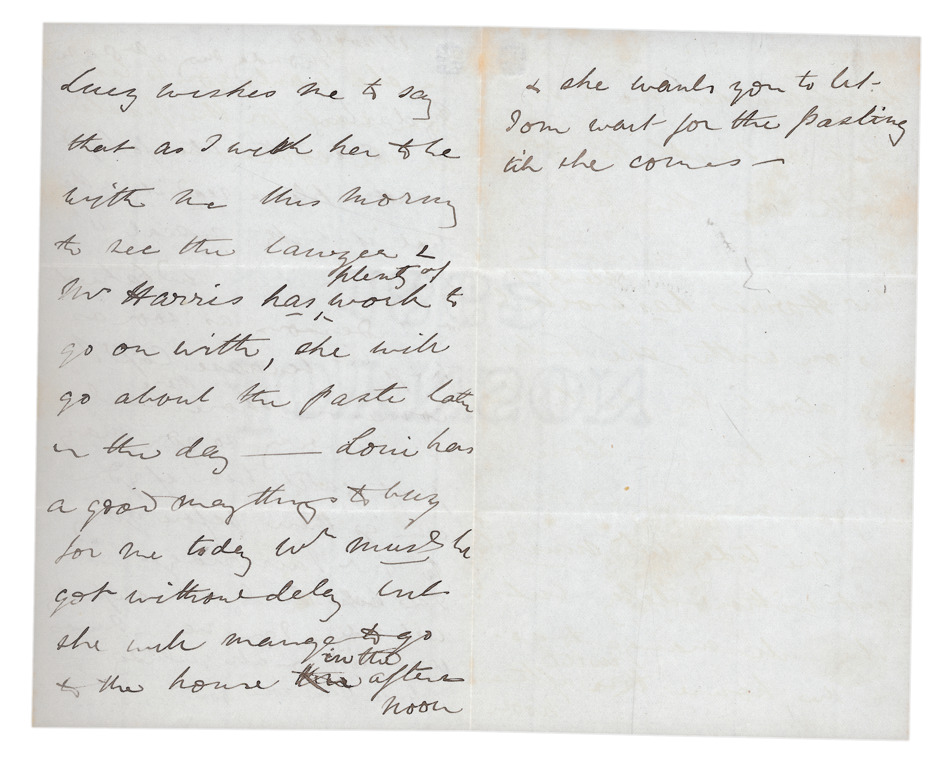 Lucy wishes me to say
that as I wish her to be
with me this morng
to see the lawyer &
plenty of
Mr Harris has work to
go on with, she will
go about the paste later
in the day — Loui has
a good many things to buy
for me today wh must be
got without delay but
she will manage to go
in the
to the house after
noon
& she wants you to let
Tom wait for the Pasting
till she comes —